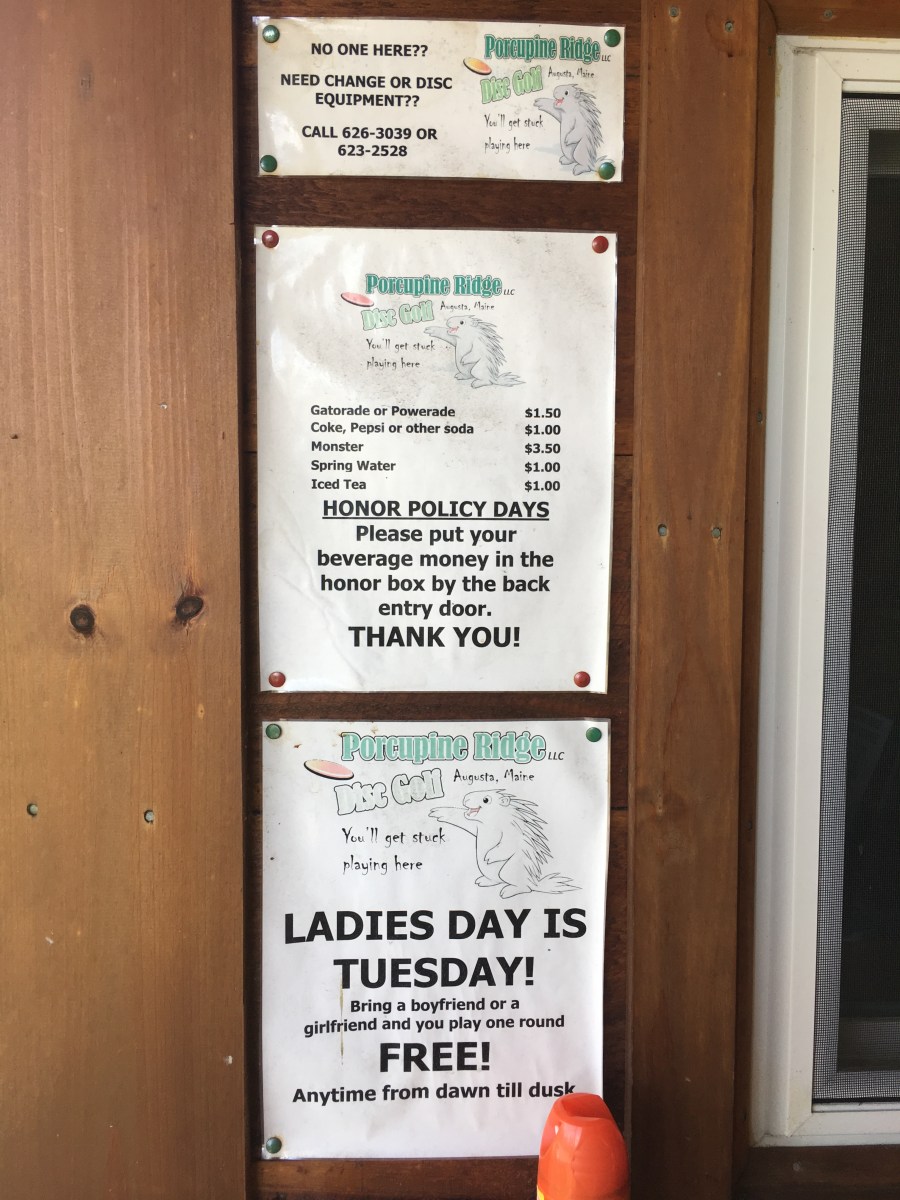 NO ONE HERE??
NEED CHANGE OR DISC
EQUIPMENT??
CALL 626-3039 OR
623-2528
Porcupine Ridge LLC
Disc Golf Augusta, Maine
You'll get stuck
playing here
Porcupine Ridge LLC
Disc Golf Augusta, Maine
You'll get stuck
playing here
Gatorade or Powerade $1.50
Coke, Pepsi or other soda $1.00
Monster $3.50
Spring Water $1.00
Iced Tea $1.00
HONOR POLICY DAYS
Please put your
beverage money in the
honor box by the back
entry door.
THANK YOU!
Porcupine Ridge LLC
Disc Golf Augusta, Maine
You'll get stuck
playing here
LADIES DAY IS
TUESDAY!
Bring a boyfriend or a
girlfriend and you play one round
FREE!
Anytime from dawn till dusk